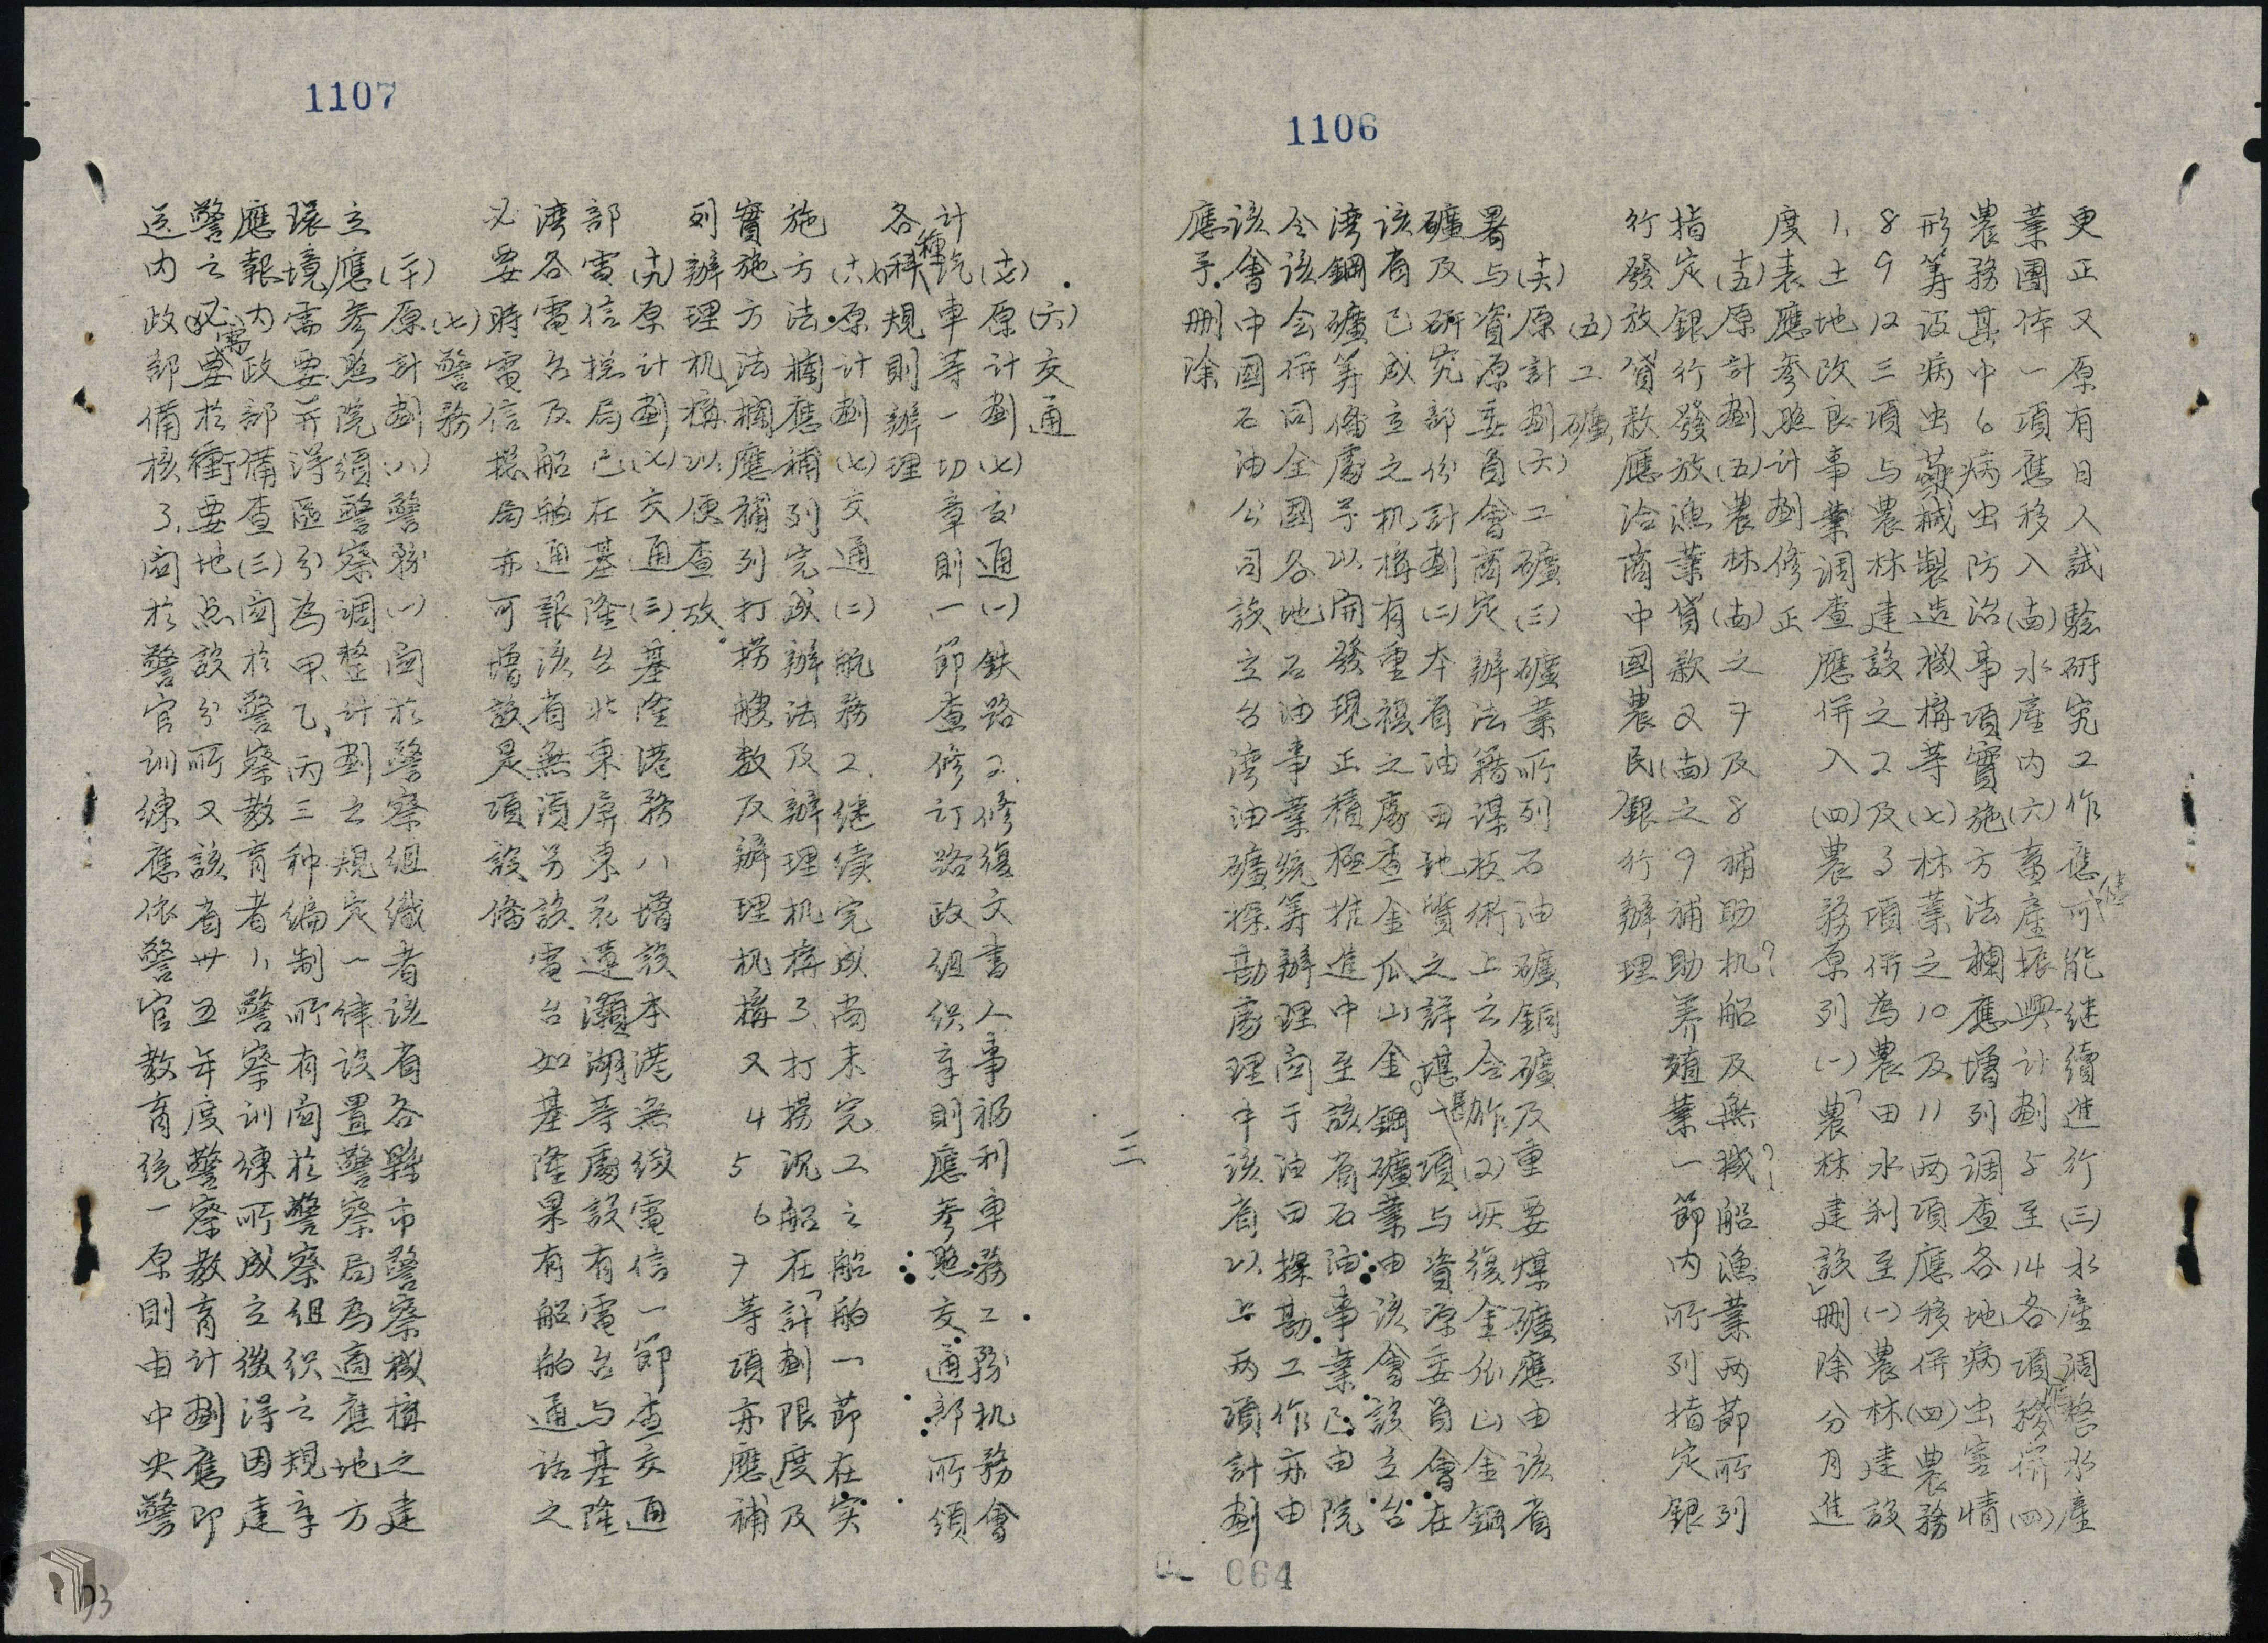 1106
更正又原有日人試驗研究工作應儘可能继續進行(三)水產調整水產
業團体一項應移入(卥)水產内(六)畜產振興計劃5至14各項應務併(四)
農務其中6病虫防治事項實施方法欄應增列調查各地病虫害情
形筹設病虫藥械製造機構等(七)林業之10及11两項應移併(四)農務
8 9 12三項与農林建設之2及3項併為農田水利至(一)農林建設
1、土地改良事業調查應併入(四)農務原列(一)「農林建設」删除分月進
度表應參照計劃修正
(十五)原計劃(五)農林(卥)之7及8補助机?船及無機?船漁業两節所列
指定銀行發放漁業貸款又(卥)之9補助养殖業一節内所列指定銀
行發放貸款應洽商中國農民銀行辦理
(五)工礦
(十六)原計劃(六)工礦(三)礦業所列石油礦銅礦及重要煤礦應由該省
署与資源委員會商定辦法籍謀技術上之合作(2)恢復金瓜山金銅
礦及研究部份計劃(二)本省油田地質之詳堪項与資源委員會在
該省已成立之机構有重複之處查金瓜山金。銅礦業由该會設立台
湾銅礦筹備處予以開發現正積極推進中至該省石油事業已由院
令该会併同全國各地石油事業統筹辦理関于油田探勘工作亦由
该會中國石油公司設立台湾油礦探勘處理中该省以上两項計劃
應予删除
三
064
1107
(六)交通
(十七)原計劃(七)交通(一)鉄路2.修復文書人事福利車務工務机務會
計汽車等一切章則一節查修订路政組织章則應參照交通部所頒
各種規則辦理
(十八)原計劃(七)交通(二)航務2.继续完成尚未完工之船舶一節在实
施方法欄應補列完成辦法及辦理机構3、打撈沉船在「計劃限度及
實施方法」欄應補列打撈艘数及辦理机構又4 5 6 7等項亦應補
列辦理机構以便查放。
(十九)原計劃(七)交通(三)基隆港務八增設本港無綫電信一節查交通
部電信总局已在基隆台北東屏東花蓮灝湖等處設有電台与基隆
湾各電台及船舶通報该省無須另設電台如基隆果有船舶通話之
必要時電信总局亦可增設是項設備
(七)警務
(二十)原計劃(八)警務(一)関於警察組織者该省各縣市警察機構之建
立應參照院頒警察調整計劃之規定一律設置警察局為適應地方
環境需要并得區分為甲、乙、丙三种編制所有関於警察組织之規章
應報内政部備查(三)関於警察教育者1、警察訓練所成立後得因建
警之必需要於衝要地点設分所又該省卅五年度警察教育計劃應即
送内政部備核3、関於警官訓練應依警官教育统一原則由中央警